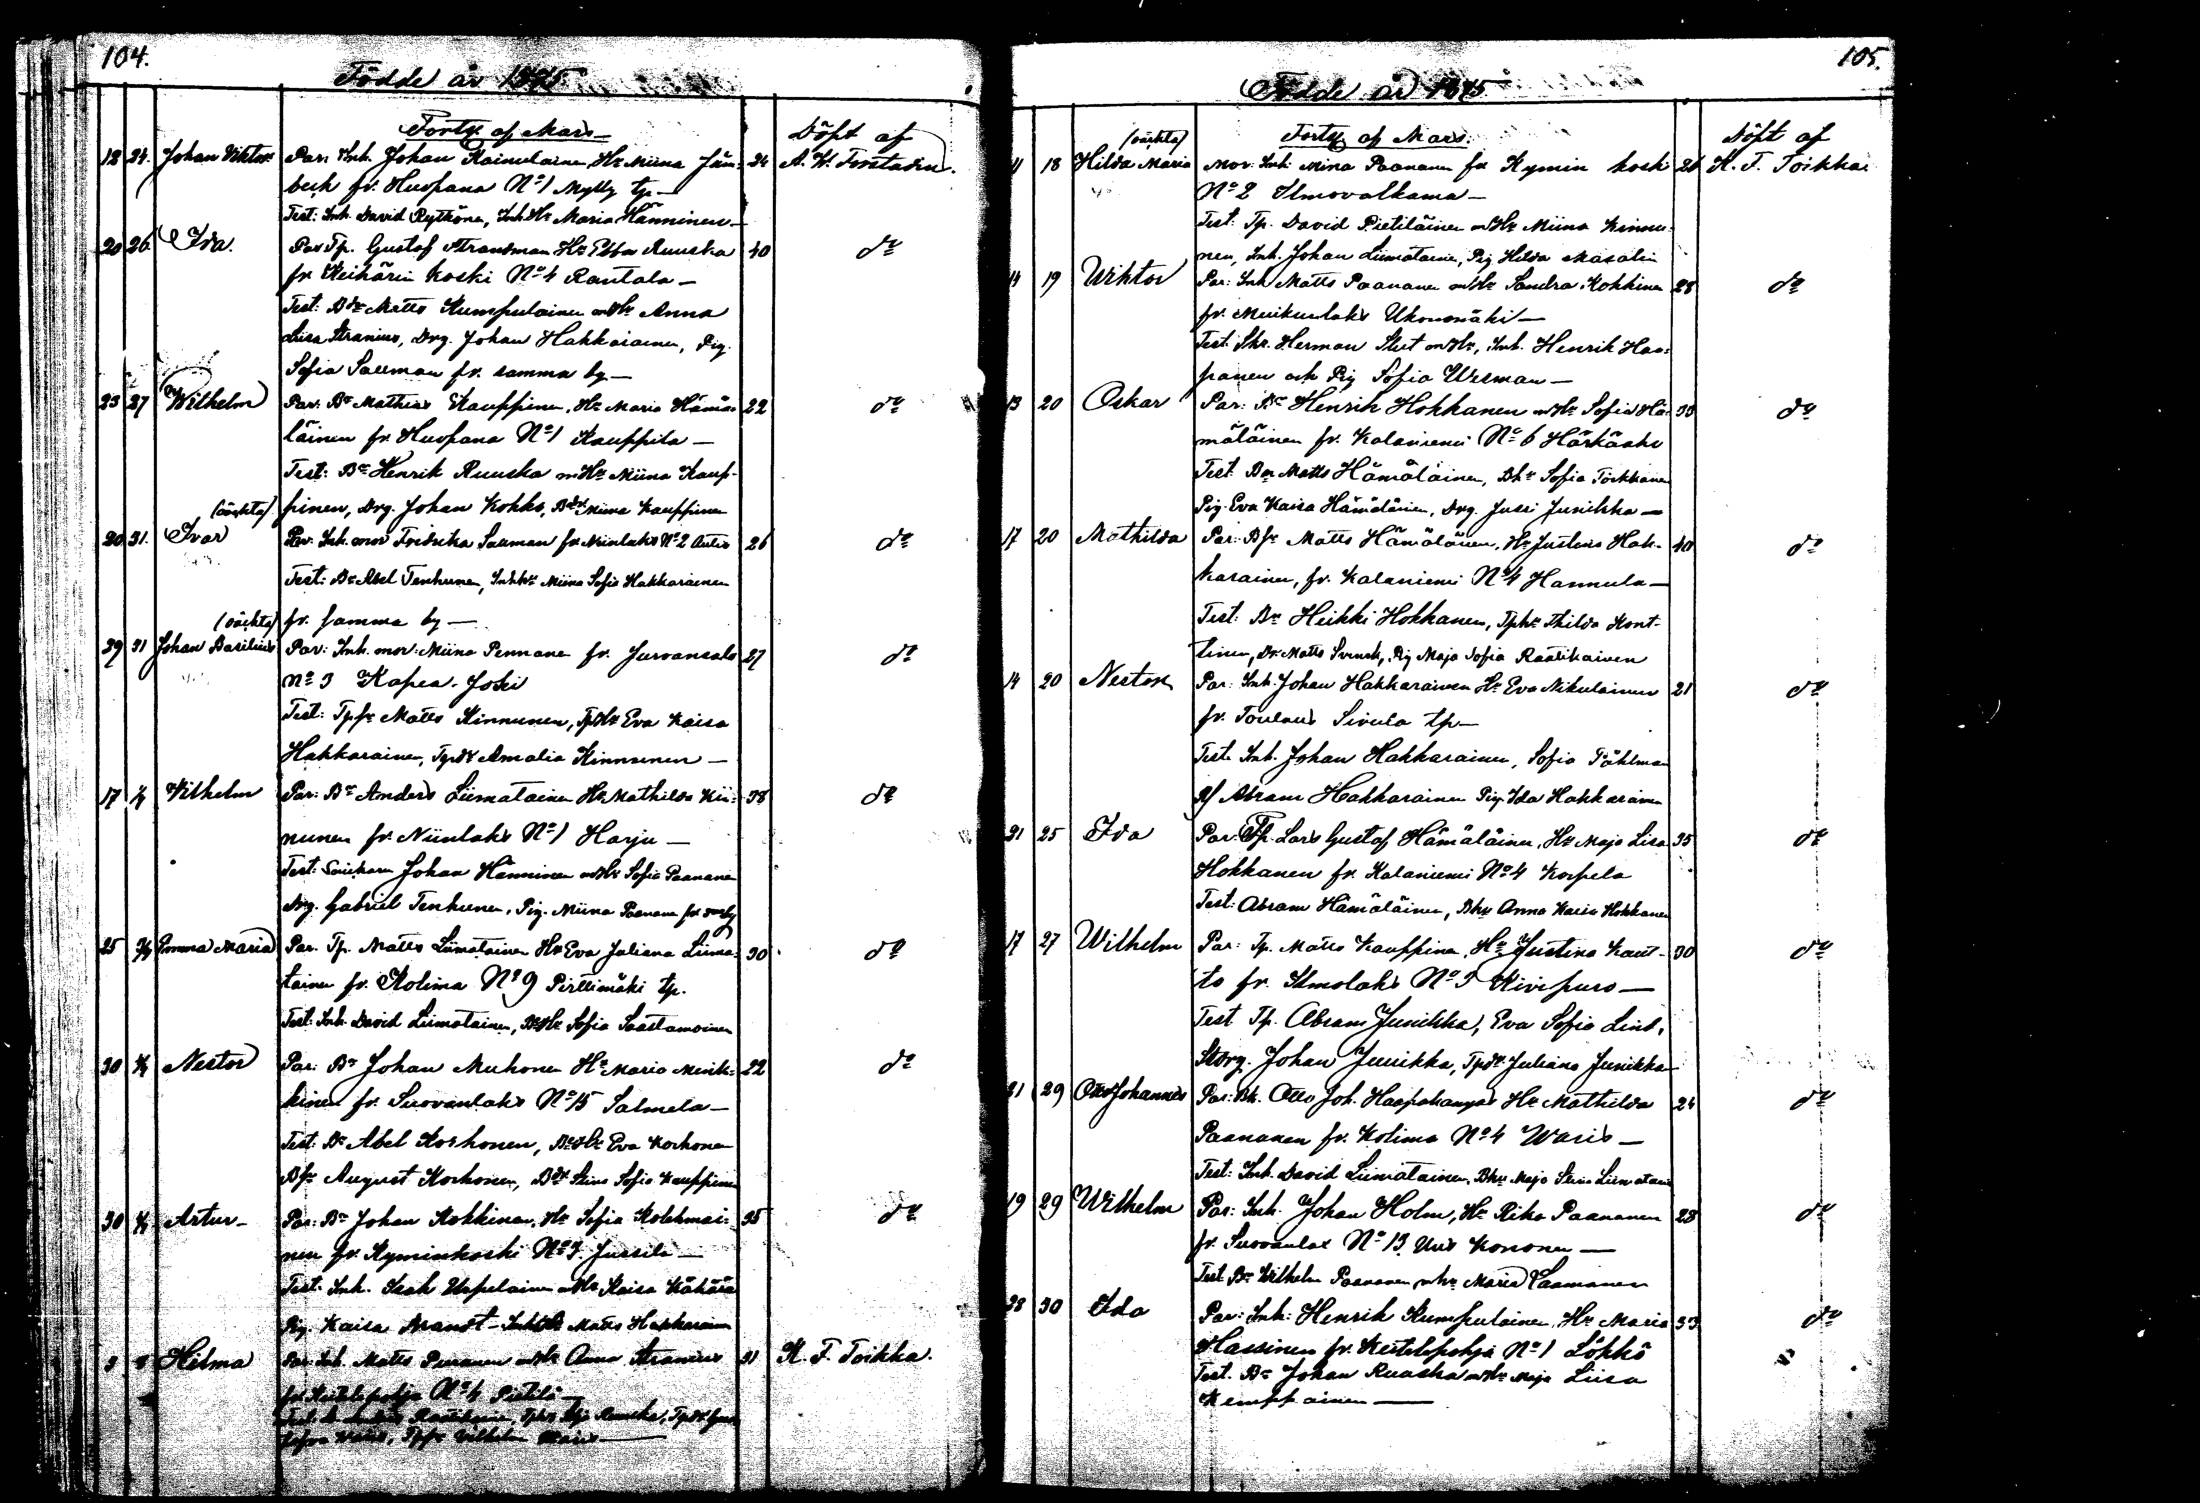 104.
Födde år 1875.
Forts. af Mars
Döft af
18 24. Johan Viktor Par: Inh. Johan Kainulainen, Hr Miina Jän- 24 A. W. Forstadius.
beck fr. Huopana No 1 Mylly tp.
Test: Inh. David Rytkönen, Inh. Hr Maria Hänninen
20 26 Ida. Par. Tp. Gustaf Strandman Hr Ebba Ruuska 40 do
fr. Keihärin koski No 4 Rantala
Test: Bdr Matts Kumpulainen m Hr Anna
Liisa Stranius, Drg. Johan Hakkarainen, Pig.
Sofia Sallman fr. samma by
23 27 Wilhelm Par: Br Mathias Kauppinen, Hr Maria Hämä- 22 do
läinen fr. Huopana No 1 Kauppila
Test: Br Henrik Ruuska m Hr Miina Kaup-
pinen, Drg. Johan Kokko, Bdr Miina Kauppinen
(oäkta)
20 31. Ivar Par. Inh. mor Fredrika Sallman fr. Niinilaks No 2 Autio 26 do
Test: Br Abel Tenhunen, Inhhr Miina Sofia Hakkarainen
fr. samma by
(oäkta)
29 31 Johan Basilius Par: Inh. mor: Miina Pennanen fr. Jurvansalo 27 do
No 3 Kapea-Joki
Test: Tpfr Matts Kinnunen, Tp Hr Eva Kaisa
Hakkarainen, Tpdr Amalia Kinnunen
17 Wilhelm Par: Br Anders Liimatainen Hr Mathilda Kin- 38 do
nunen fr. Niinilaks No 1 Harju
Test: Snickaren Johan Hänninen m Hr Sofia Paananen
Drg. Gabriel Tenhunen, Pig. Miina Paananen fr. sm by
25 Emma Maria Par. Tp. Matts Liimatainen Hr Eva Juliana Liima- 30 do
tainen fr. Kolima No 9 Pirttimäki tp.
Test: Inh. David Liimatainen, Br Hr Sofia Saastamoinen
30 Nestor Par: Br Johan Muhonen Hr Maria Mink- 22 do
kinen fr. Suovanlaks No 15 Salmela
Test: Br Abel Korhonen, Br Hr Eva Korhonen
Bfr August Korhonen, Bdr Stina Sofia Kauppinen
30 Artur Par: Br Johan Kokkinen, Hr Sofia Kolehmai- 35 do
nen fr. Kyminkoski No 7. Jussila
Test: Inh. Isak Urpelainen m Hr Kaisa Kähärä
Pig. Kaisa Brandt Matts Hakkarainen
3 Hilma Par. Inh. Matts Puranen m Hr Anna Stranius 31 K. F. Toikka.
fr. Keitelepohja No 4 Pietilä
Wilhelm
105.
Födde år 1875
Forts. af Mars.
Döft af
(oäkta)
11 18 Hilda Maria Mor: Inh. Miina Paananen fr Kymin koski 26 K. F. Toikka
No 2 Ilmovalkama
Test: Tp. David Pietiläinen m Hr Miina Kinnu-
nen, Inh. Johan Liimatainen, Pig Hilda Masalin
14 19 Wiktor Par: Inh Matts Paananen m Hr Sandra Kokkinen 28 do
fr. Muikunlaks Ukonmäki
Test: Skr. Herman Stut m Hr, Inh. Henrik Haa-
panen och Pig Sofia Wesman
13 20 Oskar Par: Br Henrik Hokkanen m Hr Sofia Hä- 30 do
mäläinen fr. Kalaniemi No 6 Härkäaho
Test: Br Matts Hämäläinen, Bhr Sofia Törkkänen
Pig. Eva Kaisa Hämäläinen, Drg. Jussi Junikka
17 20 Mathilda Par: Bfr Matts Hämäläinen, Hr Justina Hak- 40 do
karainen, fr. Kalaniemi No 4 Hannula
Test: Br Heikki Hokkanen, Tphr Thilda Kont-
tinen, Dr Matts Svensk, Pig Maja Sofia Raatikainen
14 20 Nestor Par: Inh. Johan Hakkarainen Hr Eva Nikulainen 21 do
fr. Toulaus Sivula tp
Test: Inh. Johan Hakkarainen, Sofia Påhlman
Abram Hakkarainen Pig Ida Hakkarainen
21 25 Ida Par: Tp. Lars Gustaf Hämäläinen, Hr Maja Lisa 35 do
Hokkanen fr. Kalaniemi No 4 Korpela
Test: Abram Hämäläinen, Bhr Anna Kaisa Hokkanen
17 27 Wilhelm Par: Tp. Matts Kauppinen, Hr Justina Kaut- 30 do
to fr. Ilmolaks No 3 Kivipuro
Test Tp. Abram Junikka, Eva Sofia Lind,
Johan Junikka, Tpdr Juliana Junikka
21 29 Otto Johannes Par: Bk. Otto Joh. Haapakangas Hr Mathilda 24 do
Paananen fr. Kolima No 4 Waris
Test: Inh. David Liimatainen, Bhr Maja Stina Liimatain
19 29 Wilhelm Par: Inh. Johan Holm, Hr Rika Paananen 28 do
fr. Suovanlax No 13 Uus Kononen
Test Br Wilhelm Paananen m hr Maria Saamanen
28 30 Ida Par: Inh: Henrik Kumpulainen, Hr Maria 33 do
Hassinen fr. Keitelepohja No 1 Lökkö
Test. Br Johan Ruuska m Hr Maja Liisa
Kemppainen